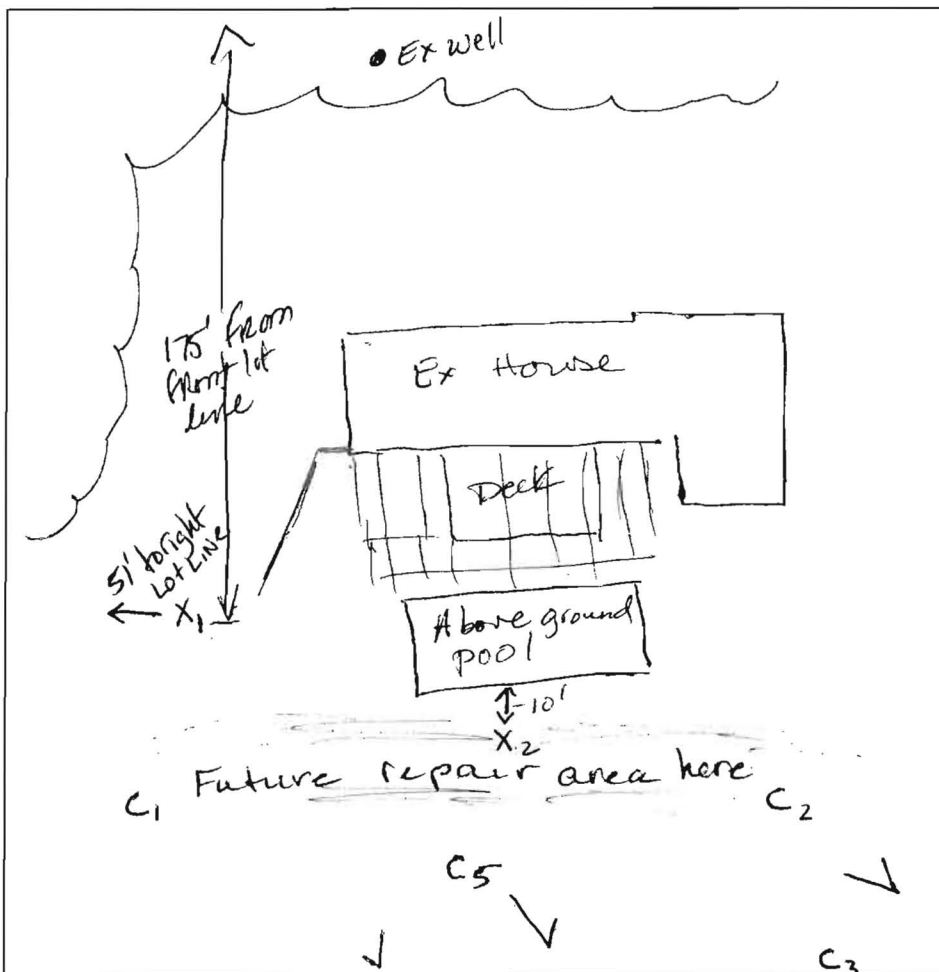 Ex well
175' From
Front lot
line
Ex House
Deck
51' to right
Lot LINE
X1
Above ground
pool
10'
X2
Future repair area here
C1
C2
C5
C3